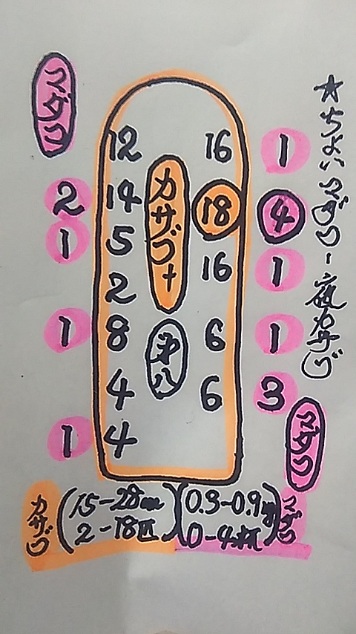 ★ちょいマダコー夜カサゴ
マダコ
12 16 1
2 14 18 4
1 5 16 1
2
1 8 6 1
4 6 3
1 4
カサゴ+
第八
マダコ
カサゴ (15-28cm 2-18匹)
(0.3-0.9kg 0-4杯) マダコ